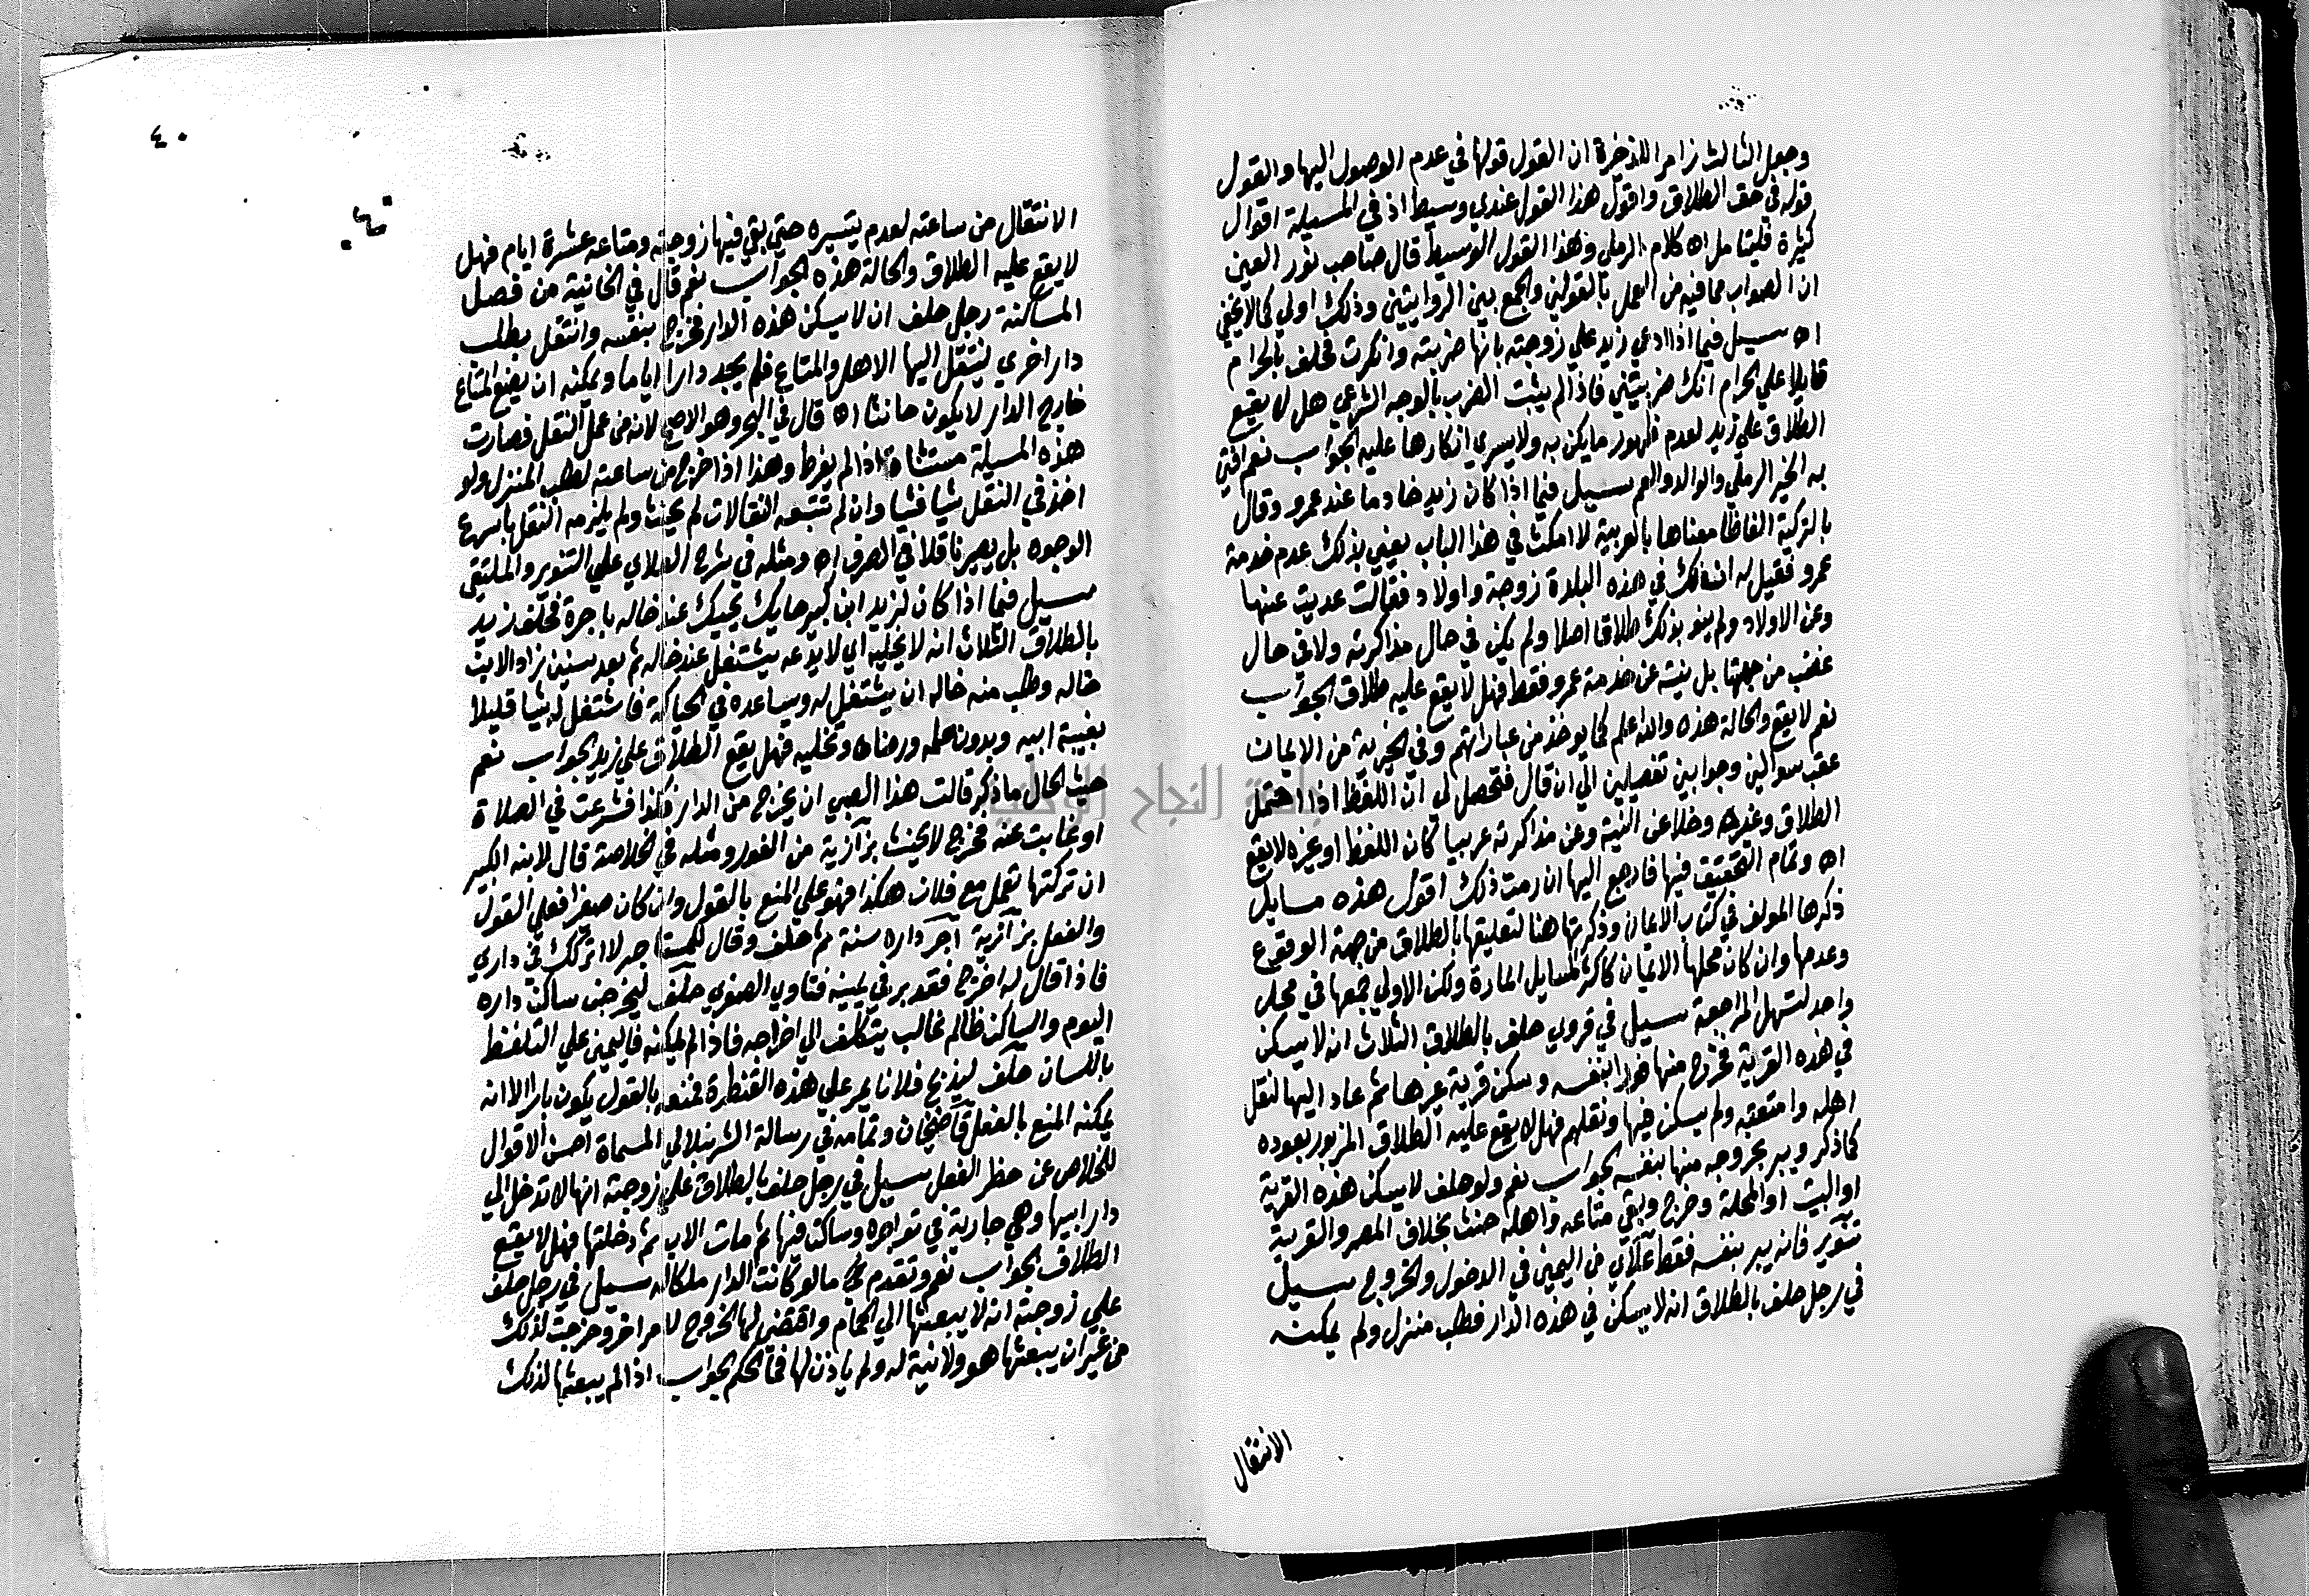 وجعل الثالث زامرا للذخيرة ان القول قولها في عدم الوصول اليها والقول
قوله في حق الطلاق واقول هذا القول عندي وسيط اذ في المسيلة اقوال
كثيرة فليتامل اه كلام الرملي وهذا القول الوسيط قال صاحب نور العين
ان الصواب مما فيه من العمل بالقولين والجمع بين الروايتين وذلك اولي كما لا يخفي
اه سيل فيما اذا ادعي زيد علي زوجته بانها ضربته وانكرت فحلف بالحرام
قايلا علي الحرام انك ضربتيني فاذا لم يثبت الضرب بالوجه الشرعي هل لا يقع
الطلاق علي زيد لعدم ظهور ما يكن به ولا يسري انكارها عليه الجواب نعم افتي
به الخير الرملي والوالد والعم سيل فيما اذا كان زيد خادما عند عمرو وقال
بالتركية الفاظا معناها بالعربية لا امكث في هذا الباب يعني بذلك عدم خدمة
عمرو فقيل له ان لك في هذه البلدة زوجة واولاد فقالت عديت عنها
وعن الاولاد ولم ينو بذلك طلاقا اصلا ولم يكن في حال مذاكرته ولا في حال
غضب من جهتها بل نيته عن خدمة عمرو فقط فهل لا يقع عليه طلاق الجواب
نعم لا يقع والحالة هذه والله اعلم كما يوخذ من عباراتهم وفي الخيرية من الايمان
عقب سوالين وجوابين تفصيلين الي ان قال فتحصل لي ان اللفظ اذا احتمل
الطلاق وغيره وخلا عن النية وعن مذاكرته عربيا كان اللفظ او غيره لا يقع
اه وتمام التحقيق فيها فارجع اليها ان رمت ذلك اقول هذه مسايل
ذكرها المولف في كتاب الايمان وذكرتها هنا لتعليقها بالطلاق من جهة الوقوع
وعدمها وان كان محلها الايمان كاكثر المسايل المارة ولكن الاولي جمعها في محل
واحد لتسهل المراجعة سيل في قروي حلف بالطلاق الثلاث انه لا يسكن
في هذه القرية فخرج منها فورا بنفسه وسكن قرية غيرها ثم عاد اليها لنقل
اهله وامتعته ولم يسكن فيها ونقلهم فهل لا يقع عليه الطلاق المزبور بعوده
كما ذكر ويبر بخروجه منها بنفسه الجواب نعم ولو حلف لا يسكن هذه القرية
او البيت او المحلة وخرج وبقي متاعه واهله حنث بخلاف المصر والقرية
تنوير فانه يبر بنفسه فقط علائي من اليمين في الدخول والخروج سيل
في رجل حلف بالطلاق انه لا يسكن في هذه الدار فطلب منزل ولم يمكنه
الانتقال
٤٠
٤٠
الانتقال من ساعته لعدم تيسره حتي بقي فيها زوجته ومتاعه عشرة ايام فهل
لا يقع عليه الطلاق والحالة هذه الجواب نعم قال في الخانية من فصل
المساكنة رجل حلف ان لا يسكن هذه الدار فخرج بنفسه وانتقل بطلب
دار اخري لينتقل اليها الاهل والمتاع فلم يجد دارا اياما ويمكنه ان يضع المتاع
خارج الدار لا يكون حانثا اه قال في البحر وهو الاصح لانه من عمل النقل فصارت
هذه المسيلة مستثناة اذا لم يفرط وهذا اذا خرج من ساعته لطلب المنزل ولو
اخذ في النقل شيا فشيا وان لم تتبعه النقالات لم يحنث ولم يلزمه النقل باسرع
الوجوه بل يصير ناقلا في العرف اه ومثله في شرح العلاي علي التنوير والملتقي
سيل فيما اذا كان لزيد ابن كبير حايك يحيك عند خاله باجرة فحلف زيد
بالطلاق الثلاث انه لا يخليه اي لا يدعه يشتغل عند خاله ثم بعد سنين زاد الابن
خاله وطلب منه خاله ان يشتغل له ويساعده في الحياكة فاشتغل له شيا قليلا
بغيبة ابيه وبدون علمه ورضاه وتخليه فهل يقع الطلاق علي زيد الجواب نعم
حيث الحال ما ذكر قالت هذا الصبي ان يخرج من الدار فكذا فشرعت في الصلاة
او غابت عنه فخرج لا يحنث بزازية من الفور ومثله في الخلاصة قال لابنه الكبير
ان تركتها تعمل مع فلان هكذا فهو علي المنع بالقول وان كان صغيرا فعلي القول
والفعل بزازية آجر داره سنة ثم حلف وقال للمستاجر لا اتركك في داري
فاذا قال له اخرج فقد بر في يمينه فتاوي الصغري حلف ليخرجن ساكن داره
اليوم والساكن ظالم غالب يتكلف الي اخراجه فاذا لم يمكنه فاليمين علي التلفظ
باللسان حلف فلانا يمر علي هذه القنطرة فمنعه بالقول يكون بارا لانه
يمكنه المنع بالفعل قاضيخان وتمامه في رسالة الشرنبلالي المسماة احسن الاقوال
للخلاص عن حظر الفعل سيل في رجل حلف بالطلاق علي زوجته انها لا تدخل الي
دار ابيها وهي جارية في تواجره وساكن فيها ثم مات الاب ثم دخلتها فهل لا يقع
الطلاق الجواب نعم وتقدم ما لو كانت الدار ملكا له سيل في رجل حلف
علي زوجته انه لا يبعثها الي الحمام واقتضي لها الخروج لامر اخر وخرجت لذلك
من غير ان يبعثها هو ولا نية له ولم ياذن لها فما الحكم الجواب اذا لم يبعثها لذلك